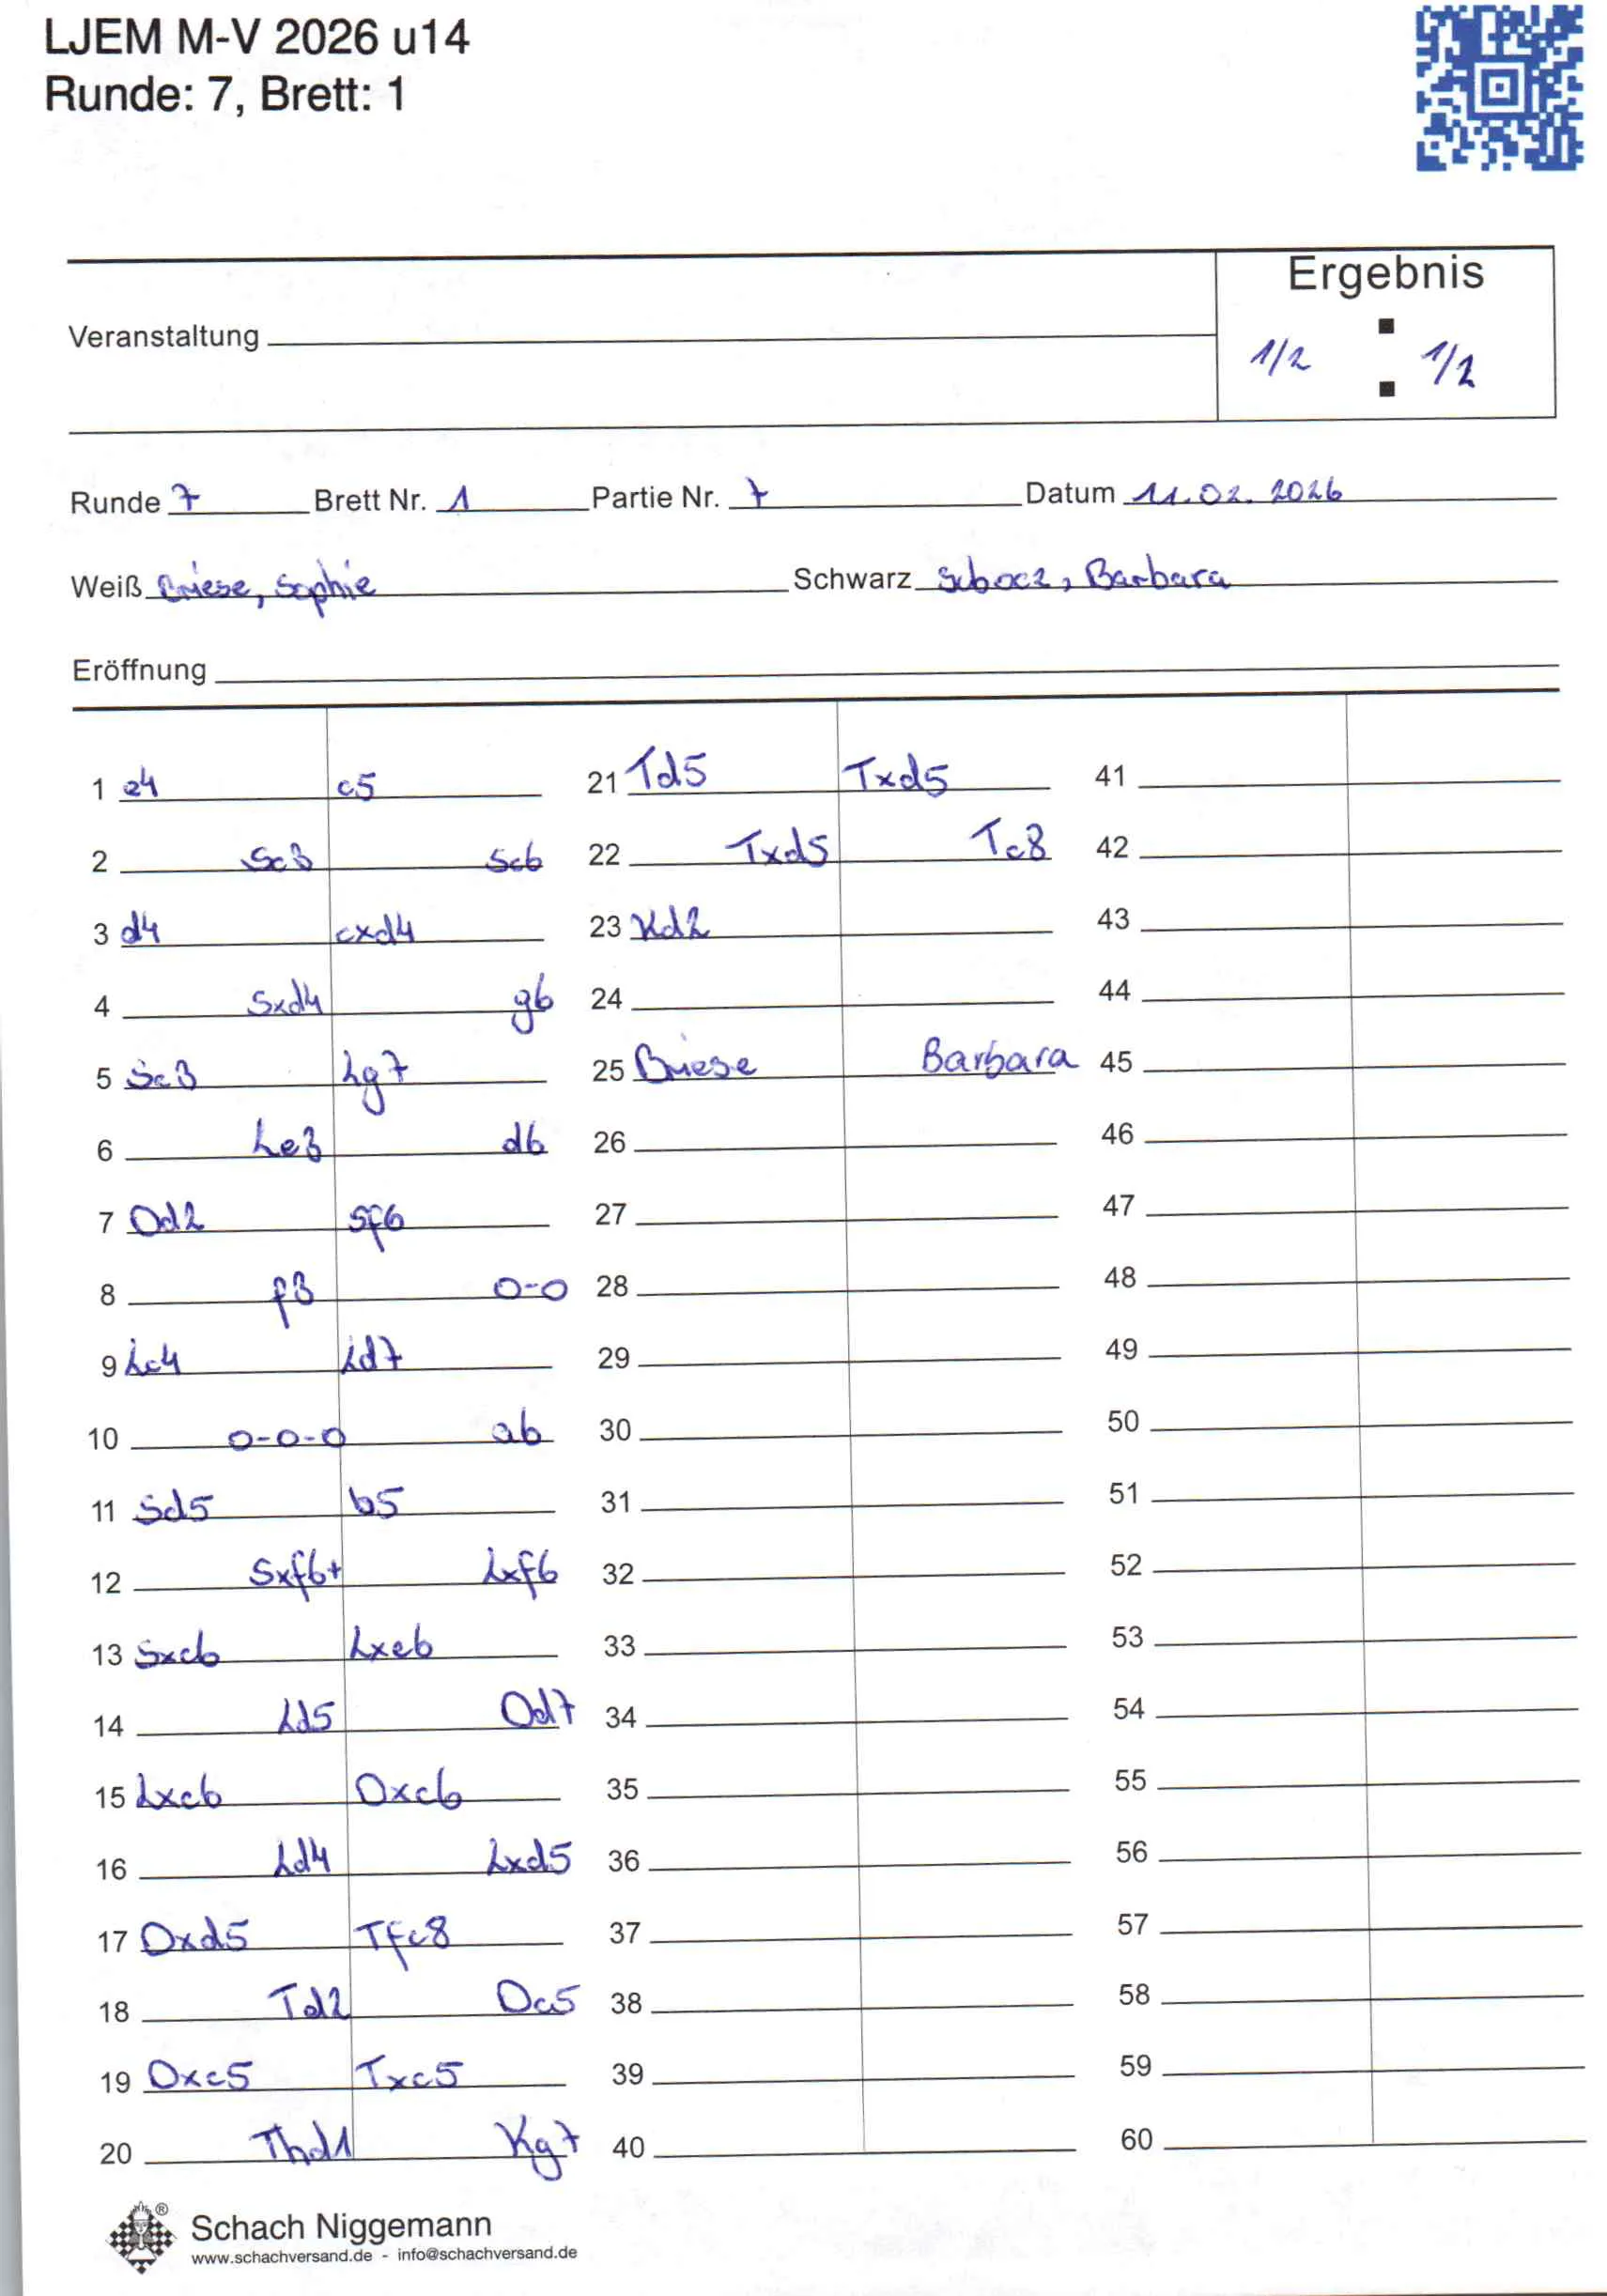 LJEM M-V 2026 u14
Runde: 7, Brett: 1
Ergebnis
Veranstaltung
1/2 : 1/2
Runde 7 Brett Nr. 1 Partie Nr. 7 Datum 11.02.2026
Weiß Briese, Sophie Schwarz Barbara
Eröffnung
1 e4 c5 21 Td5 Txd5 41
2 Sc3 Sc6 22 Txd5 Tc8 42
3 d4 cxd4 23 Kd2 43
4 Sxd4 g6 24 44
5 Sc3 Lg7 25 Briese Barbara 45
6 Le3 d6 26 46
7 Dd2 Sf6 27 47
8 f3 0-0 28 48
9 Lc4 Ld7 29 49
10 0-0-0 a6 30 50
11 Sd5 b5 31 51
12 Sxf6+ Lxf6 32 52
13 Sxc6 Lxc6 33 53
14 Ld5 Dd7 34 54
15 Lxc6 Dxc6 35 55
16 Ld4 Lxd5 36 56
17 Dxd5 Tfc8 37 57
18 Td2 Dc5 38 58
19 Dxc5 Txc5 39 59
20 Thd1 Kg7 40 60
Schach Niggemann
www.schachversand.de - info@schachversand.de